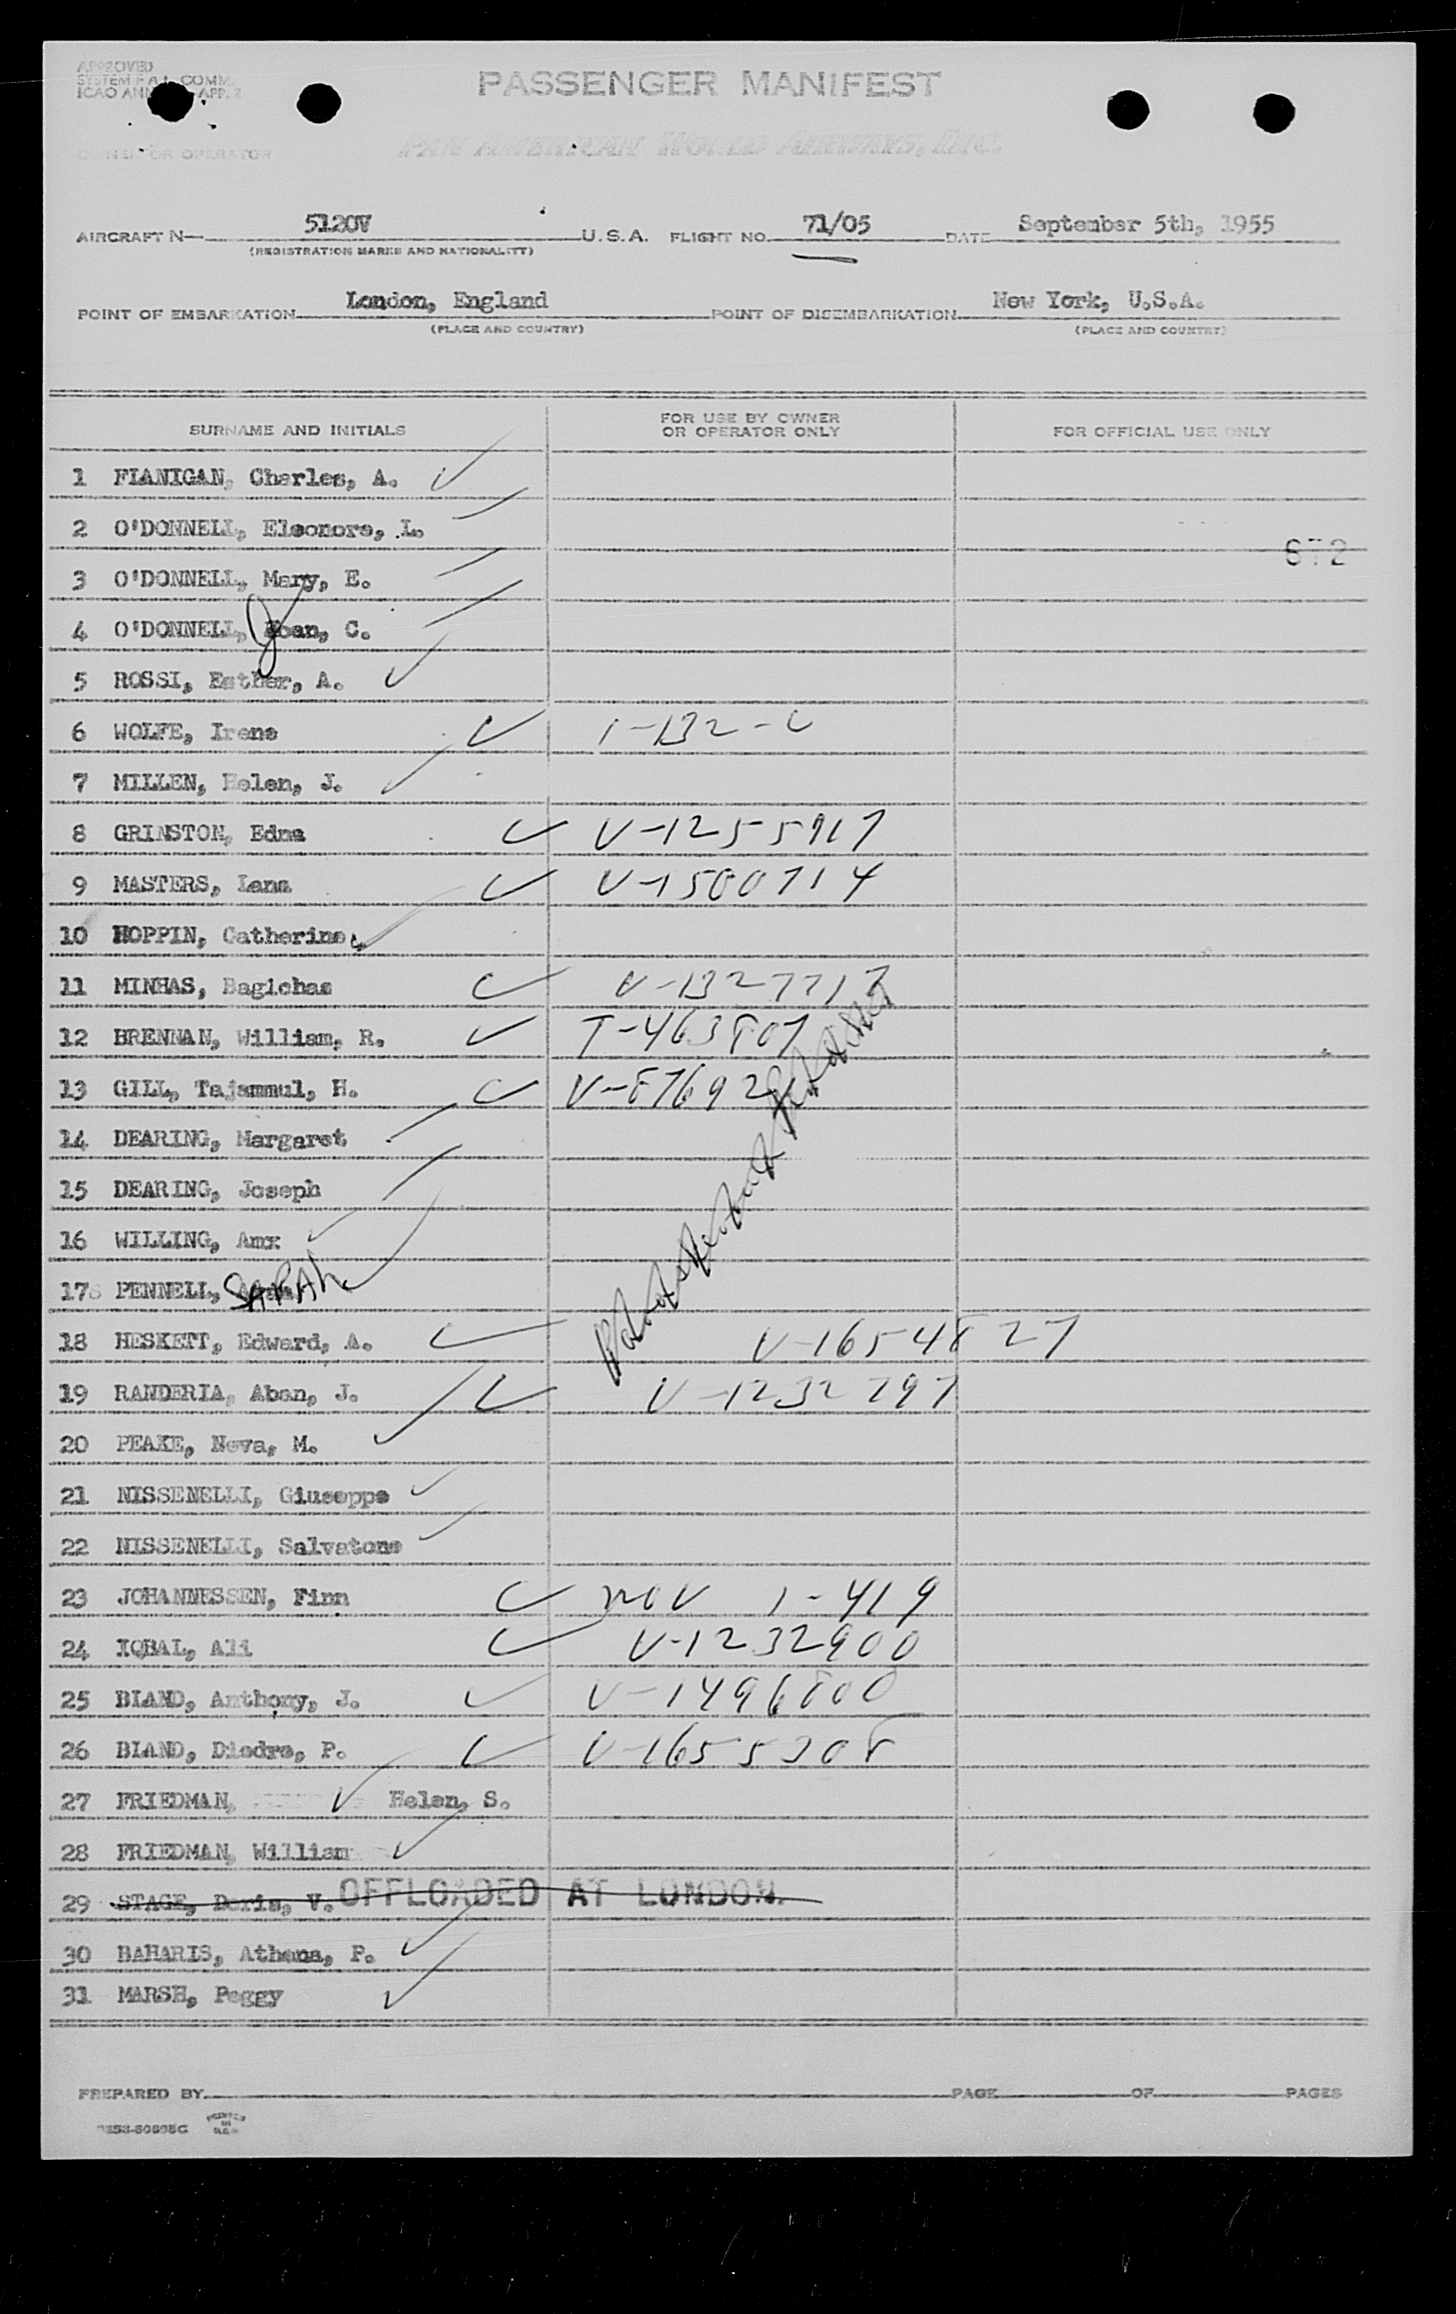 APPROVED
SYSTEM F.A.L. COMM.
ICAO ANN APP. 2
PASSENGER MANIFEST
OWNER OR OPERATOR PAN AMERICAN WORLD AIRWAYS, INC.
AIRCRAFT N— 5120V U.S.A. FLIGHT NO. 71/05 DATE September 5th, 1955
(REGISTRATION MARKS AND NATIONALITY)
POINT OF EMBARKATION London, England POINT OF DISEMBARKATION New York, U.S.A.
(PLACE AND COUNTRY) (PLACE AND COUNTRY)
SURNAME AND INITIALS FOR USE BY OWNER OR OPERATOR ONLY FOR OFFICIAL USE ONLY
1 FLANIGAN, Charles, A.
2 O'DONNELL, Eleonore, L.
672
3 O'DONNELL, Mary, E.
4 O'DONNELL, Joan, C.
5 ROSSI, Esther, A.
6 WOLFE, Irene 1-132-C
7 MILLEN, Helen, J.
8 GRINSTON, Edna V-1255917
9 MASTERS, Lana V-1500714
10 HOPPIN, Catherine,
11 MINHAS, Bagichas V-1327717
12 BRENNAN, William, R. T-463807
13 GILL, Tajammul, H. V-87692
14 DEARING, Margaret
15 DEARING, Joseph
16 WILLING, Amx
17 PENNELL, SARAH
18 HESKETT, Edward, A. V-1654827
19 RANDERIA, Aban, J. V-1232797
20 PEAKE, Neva, M.
21 NISSENELLI, Giuseppe
22 NISSENELLI, Salvatone
23 JOHANNESSEN, Finn nov 1-419
24 IQBAL, Ali V-1232900
25 BLAND, Anthony, J. V-1496800
26 BLAND, Diedre, P. V-1655308
27 FRIEDMAN, Helen, S.
28 FRIEDMAN, William
29 STAGE, Doris, V. OFFLOADED AT LONDON.
30 BAHARIS, Athena, P.
31 MARSH, Peggy
PREPARED BY PAGE OF PAGES
PRINTED IN U.S.A.